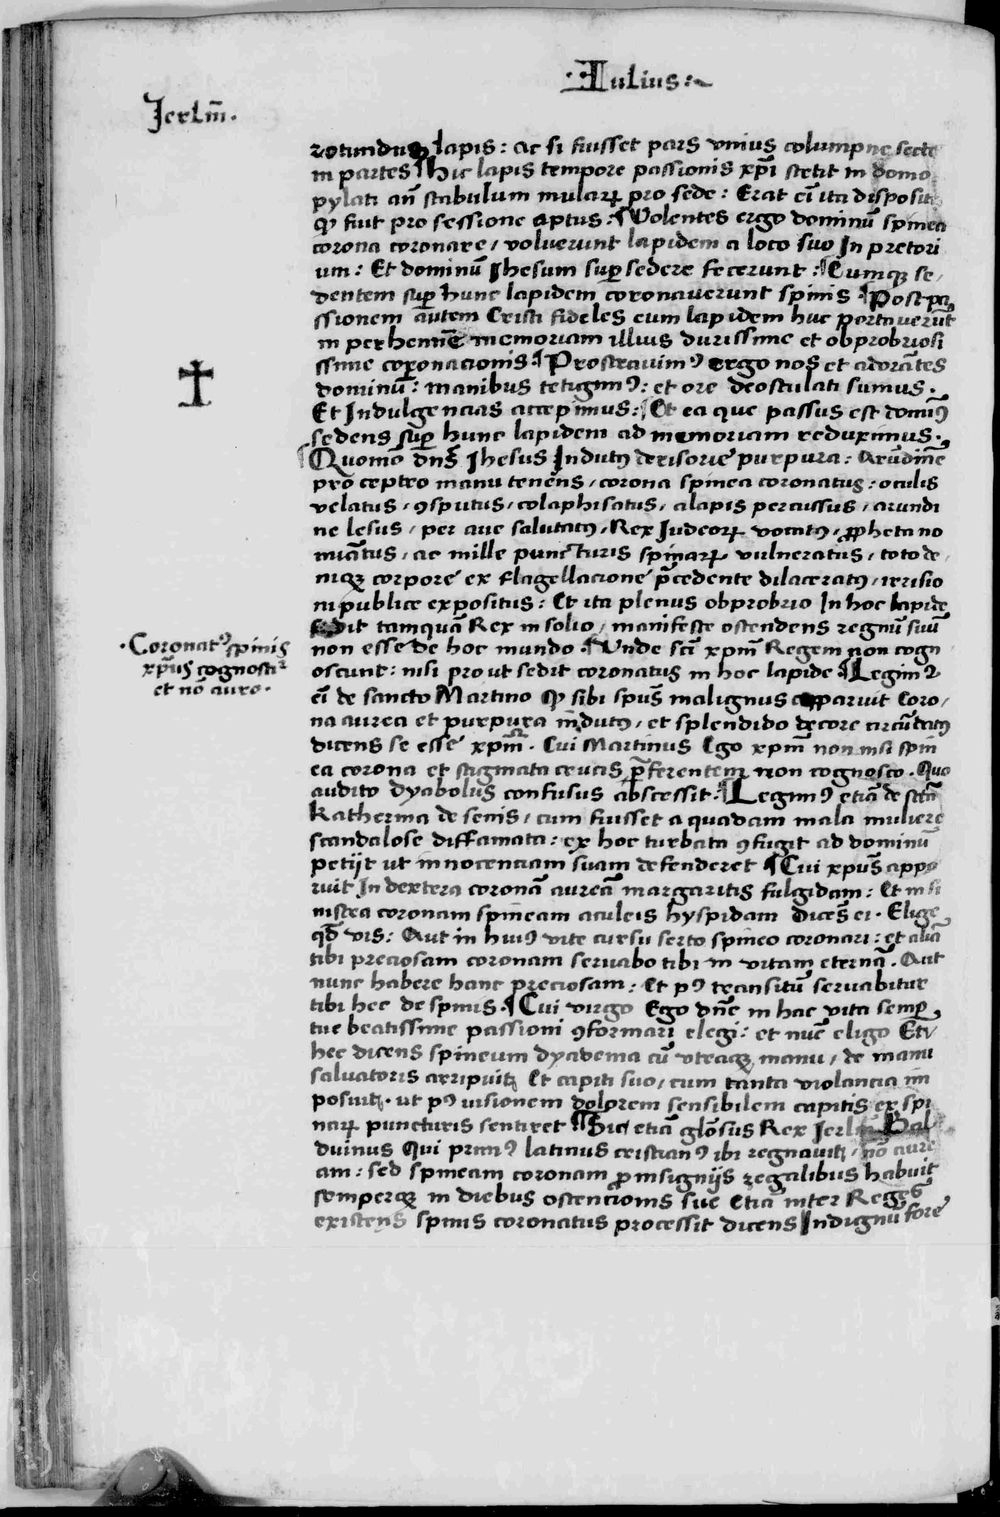 ·Iulius:~
Jerlm̄.
rotundus lapis: ac si fuisset pars vnius columpne secte
in partes ¶ Hic lapis tempore passionis xp̄i stetit in domo
pylati an̄ stabulum mularꝝ pro sede: Erat ei͞ ita disposit
ꝙ fuit pro sessione aptus: ¶ Volentes ergo dominū spinea
corona coronare, voluerunt lapidem a loco suo In pretori
um: Et dominū Ihesum sup̱ sedere fecerunt: ¶ Cumqꝫ se,
dentem sup̱ hunc lapidem coronauerunt spinis ¶ Post pa,
ssionem autem Cristi fideles eum lapidem huc portauerūt
in perhennē memoriam illius durissime et obprobriosi
ssime coronacionis. ¶ Prostrauimꝰ ergo nos et adorātes
dominū: manibus tetigimꝰ: et ore deosculati sumus.
Et Indulgencias accepimus: ¶ Et ea que passus est domiꝰ
sedens sup̱ hunc lapidem ad memoriam reduximus.
Quomō dn̄s Ihesus Indutꝰ derisorie purpura: Arūdinē
pro ceptro manu tenens, corona spinea coronatus: oculis
velatus, ꝯsputus, colaphisatus, alapis percussus, arundi
ne lesus, per aue salutatꝰ, Rex Iudeorꝝ vocatꝰ, ꝓpheta no
minatus, ac mille puncturis spinarꝝ vulneratus, toto de,
niqꝫ corpore ex flagellacione p̄cedente dilaceratꝰ, irrisio
ni publice expositus: Et ita plenus obprobrio In hoc lapide
sedit tamquā Rex in solio, manifeste ostendens regnū suū
non esse de hoc mundo ¶ Vnde scī xp̄m Regem non cogn
oscunt: nisi pro ut sedit coronatus in hoc lapide ¶ Legimꝰ
·Coronatꝰ spinis
xp̄us cognosciꝉ
et nō auro·
ei͞ de sancto Martino ꝙ sibi spūs malignus apparuit Coro,
na aurea et purpura indutꝰ, et splendido decore circūdatꝰ
dicens se esse xp̄m. Cui Martinus Ego xp̄m non nisi spin
ea corona et stigmata crucis p̄ferentem non cognosco. Quo
audito dyabolus confusus abscessit: ¶ Legimꝰ etiā de sctā
Katherina de senis, cum fuisset a quadam mala muliere
scandalose diffamata: ex hoc turbata ꝯfugit ad dominū
petijt ut innocenciam suam defenderet ¶ Cui xpūs appa
ruit In dextera coronā aureā margaritis fulgidam: Et in si
nistra coronam spineam aculeis hyspidam dicēs ei. Elige
qd̄ vis: Aut in huiꝰ vite cursu serto spineo coronari: et aliā
tibi preciosam coronam seruabo tibi in vitam eternā. Aut
nunc habere hanc preciosam: Et pꝰ transitū seruabitur
tibi hec de spinis. ¶ Cui virgo Ego dn̄e in hac vita semp̱
tue beatissime passioni ꝯformari elegi: et nūc eligo Et
hec dicens spineum dyadema cū vtraqꝫ manu, de manu
saluatoris arripuit Et capiti suo, cum tanta violancia im
posuit. ut pꝰ uisionem dolorem sensibilem capitis ex spi
narꝝ puncturis sentiret ¶ Sic etiā glōsus Rex Jerlm̄ Bal
duinus Qui primꝰ latinus cristianꝰ ibi regnauit, nō aure
am: sed spineam coronam ꝓ insignijs regalibus habuit
semperqꝫ in diebus ostencionis sue Etiā inter Reges
existens spinis coronatus processit dicens Indignū fore